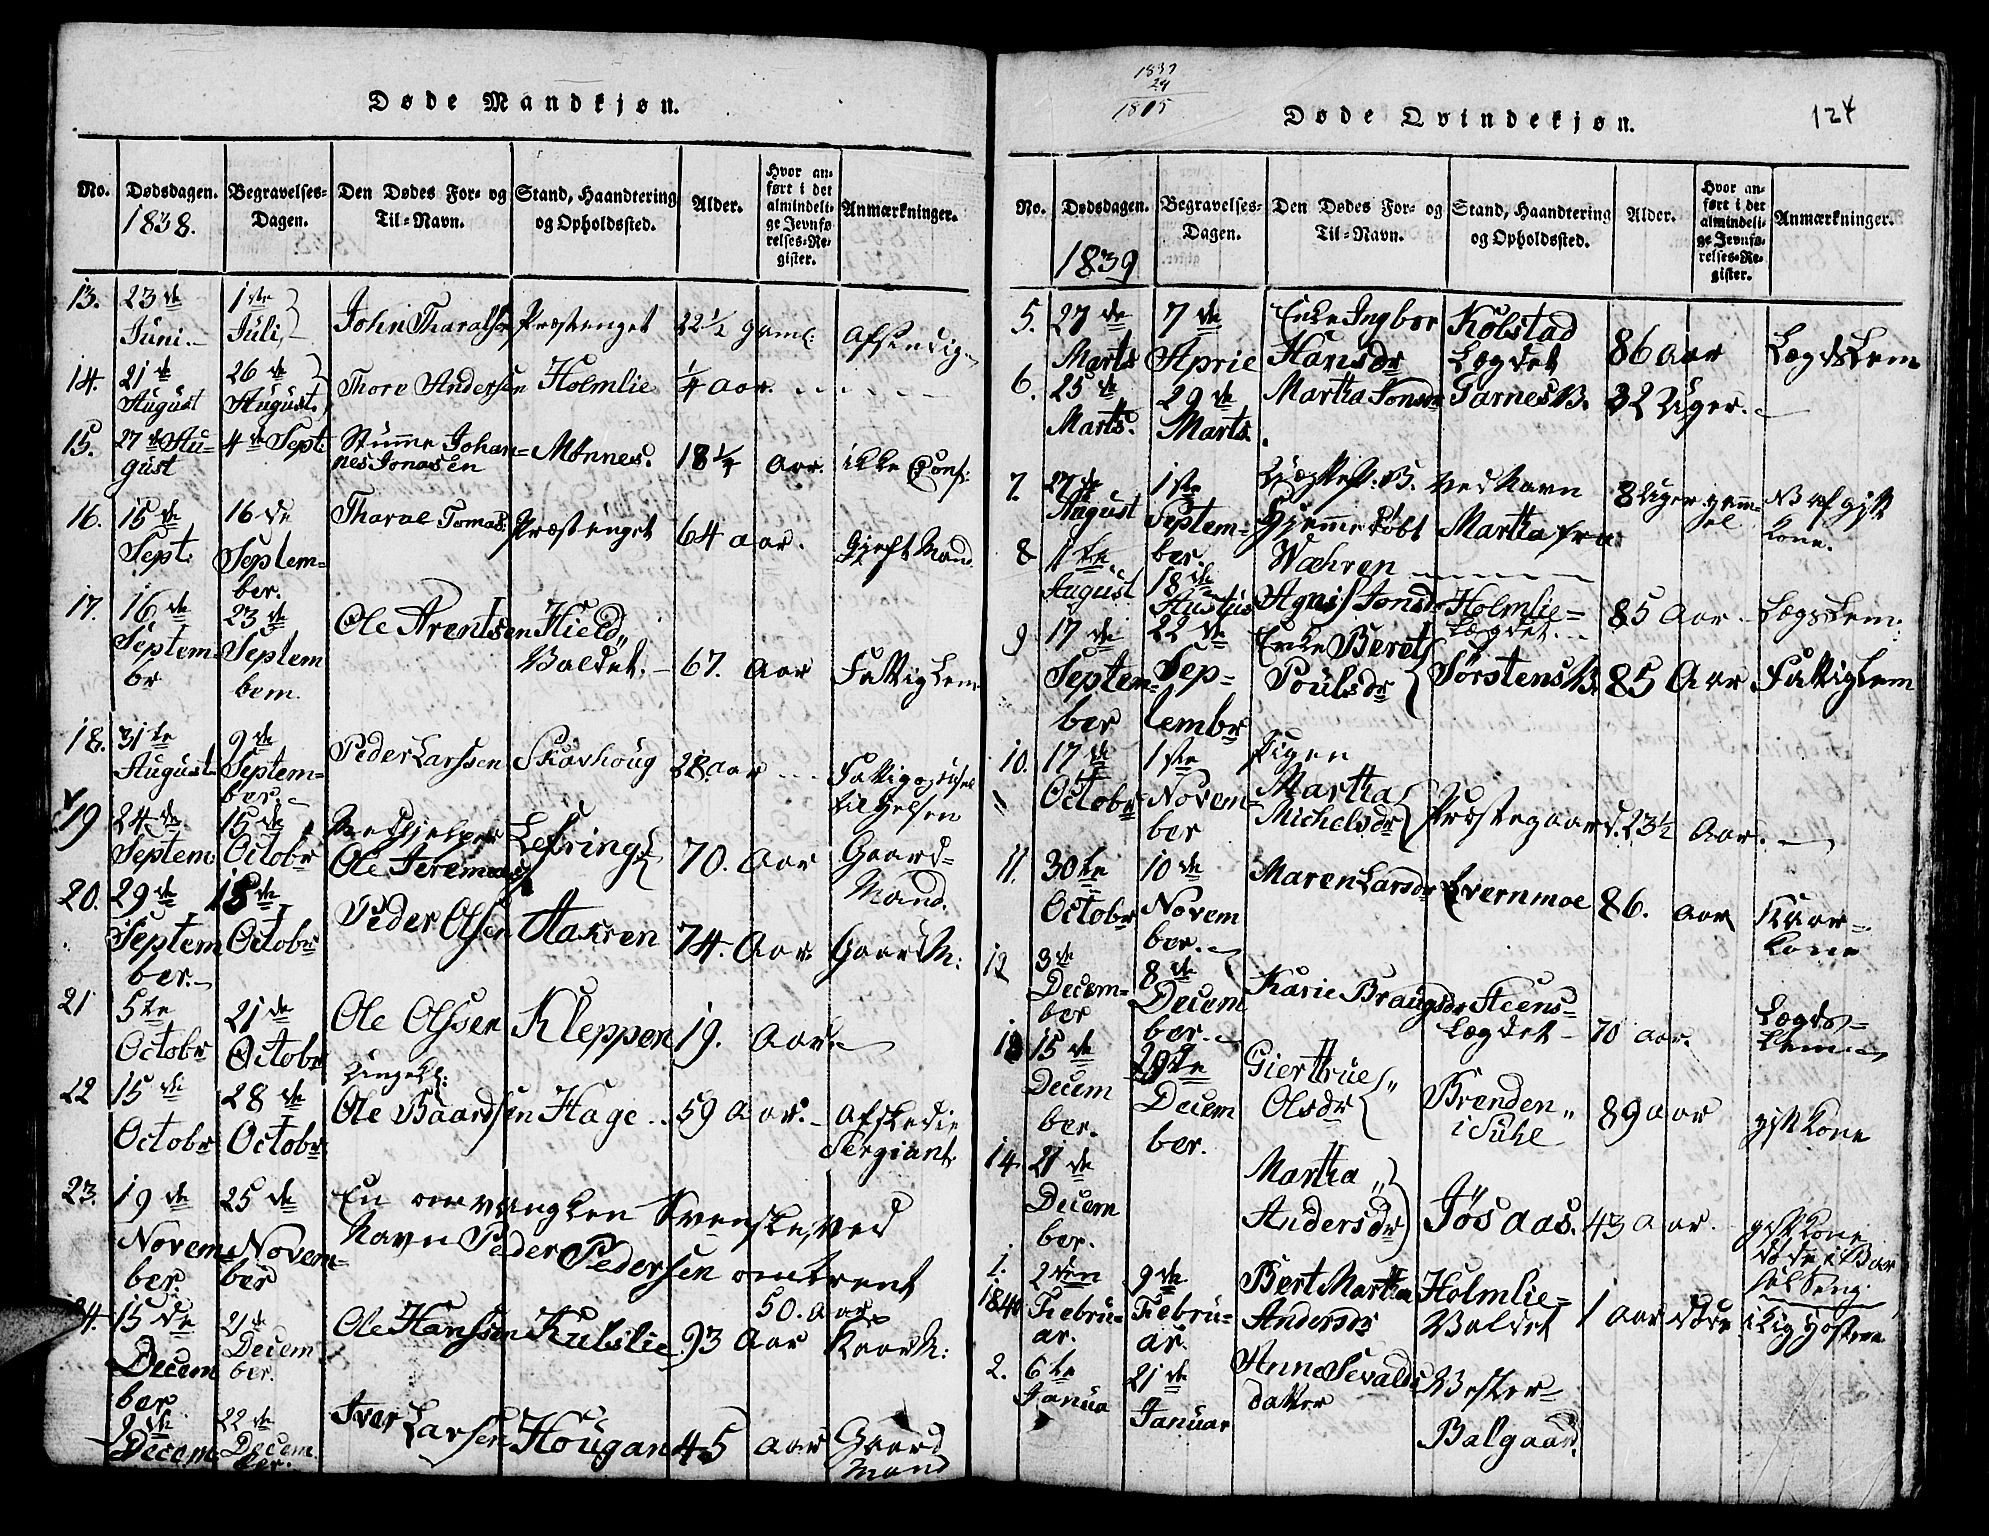 Døde Mandkjøn.
No. Dødsdagen. Begravelses-Dagen. Den Dødes For- og Til-Navn. Stand, Haandtering og Opholdssted. Alder. Hvor anført i det almindelige Jevnførelses-Register. Anmærkninger.
1838.
13. 23de Juni. 1ste Juli, John Tharalsen Præstenget 22 1/2 gaml:
14. 21de August 26de August. Thore Andersen Holmlie 1/4 Aar.
15. 27de August 4de Sept: Stumme Johannes Jonasen Mønnes. 18 1/4 Aar. ikke Conf:
16. 15de Sept. 16de September. Tharal Tomas: Præstenget 64 Aar. Gjeft Mand
17. 16de Septembr 23de Septem Ole Arentsen Hield Valdet. 67. Aar Fattiglem
18. 31te August 9de September. Peder Larssen Skavhoug 28. Aar
19 24de Septem 15de Octobr Medhjelper Ole Jeremias Lefring 70. Aar Gaard-Mand.
20. 29de September. 15de Octobr Peder Olsen Aakren 74. Aar Gaard M:
21 5te Octobr 21de Octobr Ole Olssen Kleppen 19. Aar
22 15de Octobr 28de Octobr Ungkl: Ole Baardsen Hage 59 Aar. Afskedie Sergiant
23. 19de November. 25de November En omvanglen Svenske, ved Navn Peder Pedersen omtrent 50. Aar
24. 15de December 21de December. Ole Hanssen Kulslie 93 Aar Kaar M:
9de Decem 22de December. Iver Larsen Hougan 45 Aar Gaard Mand
1839
24
1815
Døde Qvindekjøn.
124
No. Dødsdagen. Begravelses-Dagen. Den Dødes For- og Til-Navn. Stand, Haandtering og Opholdssted. Alder. Hvor anført i det almindelige Jevnførelses-Register. Anmærkninger.
1839
5. 27de Marts 7de Aprie Enke Ingbor Hansdr Kolstad Lægdet 86 Aar LægdsLem
6. 25de Marts. 29de Marts. Martha Jonsdr Tarnes B. 32 Uger.
7. 27de August 1ste September. B. ved Navn Hjemmedøbt Martha fra Wæhren 8 Uger gammel Kone.
8 11te August 18de Agnis Jonsdr Holmlie-Lægdet 85 Aar LægsLem:
9 17de September 22de Septembr Enke Beret Poulsdr 85 Aar Fattiglem
10. 17de Octobr 1ste November Pigen Martha Michelsdr Præstegaard. 23 1/2 Aar.
11. 30te Octobr 10de November. Maren Larsdr Evernmoe 86. Aar Kaar-Kone
12 3de December 8de December. Karie Braugsdr Steens-Lægdet 70 Aar. Lægds-Lem
13 15de December. 29te December. Giertrue Olsdr Brenden i Suhl 89 Aar gift Kone
14. 21de December. Martha Andersdr Jøsaas. 43 Aar. gift Kone døde i Barselseng
1. 1840 2den Februar. 9de Februar. Bert Martha Andersdr Holmlie-Valdet 1 Aar døde i Kighosten
2. 6te Janua 21de Januar Anne Sevaldsdatter Vester-Balgaard.